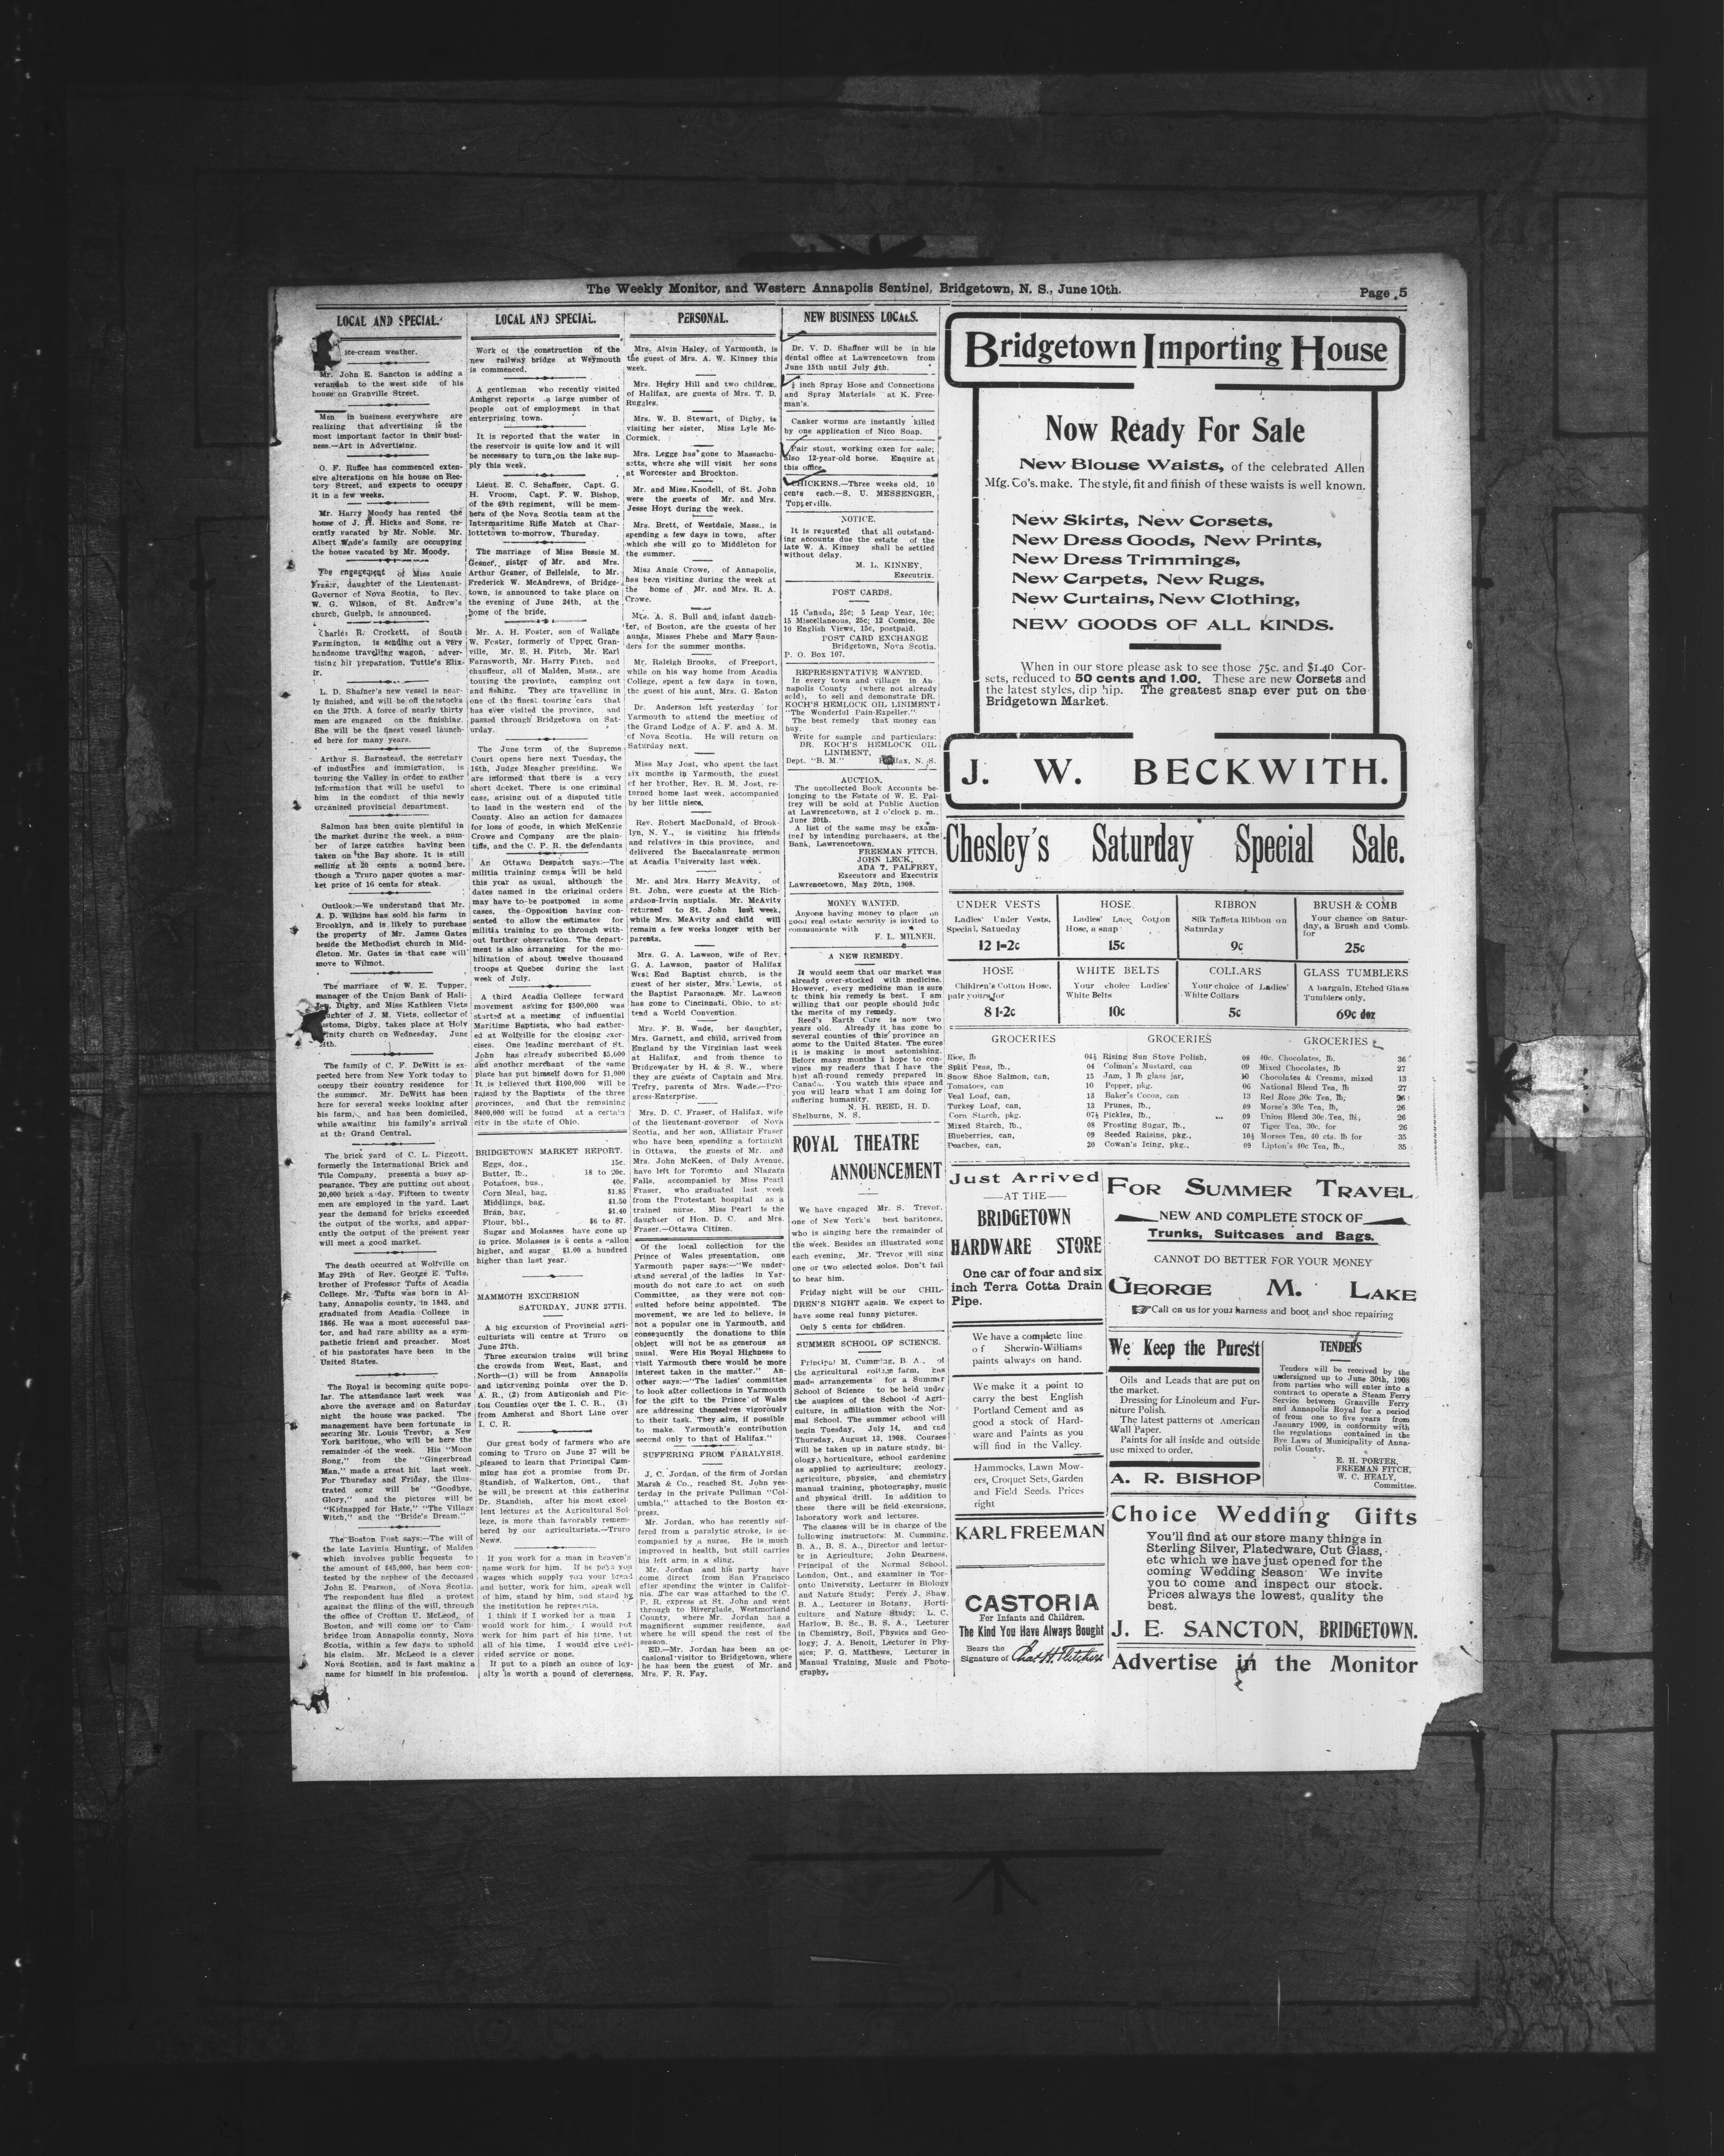 The Weekly Monitor, and Western Annapolis Sentinel, Bridgetown, N. S., June 10th.
Page 5
LOCAL AND SPECIAL.
ice-cream weather.
Mr. John E. Sancton is adding a
verandah to the west side of his
house on Granville Street.
Men in business everywhere are
realizing that advertising is the
most important factor in their busi-
ness.—Art in Advertising.
O. F. Ruffee has commenced exten-
sive alterations on his house on Rec-
tory Street, and expects to occupy
it in a few weeks.
Mr. Harry Moody has rented the
house of J. H. Hicks and Sons, re-
cently vacated by Mr. Noble. Mr.
Albert Wade's family are occupying
the house vacated by Mr. Moody.
The engagement of Miss Annie
Fraser, daughter of the Lieutenant-
Governor of Nova Scotia, to Rev.
W. G. Wilson, of St. Andrew's
church, Guelph, is announced.
Charles R. Crockett, of South
Farmington, is sending out a very
handsome travelling wagon, adver-
tising his preparation, Tuttle's Elix-
ir.
L. D. Shafner's new vessel is near-
ly finished, and will be off the stocks
on the 27th. A force of nearly thirty
men are engaged on the finishing.
She will be the finest vessel launch-
ed here for many years.
Arthur S. Barnstead, the secretary
of industries and immigration, is
touring the Valley in order to gather
information that will be useful to
him in the conduct of this newly
organized provincial department.
Salmon has been quite plentiful in
the market during the week, a num-
ber of large catches having been
taken on the Bay shore. It is still
selling at 20 cents a pound here,
though a Truro paper quotes a mar-
ket price of 16 cents for steak.
Outlook:—We understand that Mr.
A. D. Wilkins has sold his farm in
Brooklyn, and is likely to purchase
the property of Mr. James Gates
beside the Methodist church in Mid-
dleton. Mr. Gates in that case will
move to Wilmot.
The marriage of W. E. Tupper,
manager of the Union Bank of Hali-
Digby, and Miss Kathleen Viets
daughter of J. M. Viets, collector of
customs, Digby, takes place at Holy
Trinity church on Wednesday, June
The family of C. F. DeWitt is ex-
pected here from New York today to
occupy their country residence for
the summer. Mr. DeWitt has been
here for several weeks looking after
his farm, and has been domiciled,
while awaiting his family's arrival
at the Grand Central.
The brick yard of C. L. Piggott,
formerly the International Brick and
Tile Company, presents a busy ap-
pearance. They are putting out about
20,000 brick a day. Fifteen to twenty
men are employed in the yard. Last
year the demand for bricks exceeded
the output of the works, and appar-
ently the output of the present year
will meet a good market.
The death occurred at Wolfville on
May 29th of Rev. George E. Tufts,
brother of Professor Tufts of Acadia
College. Mr. Tufts was born in Al-
bany, Annapolis county, in 1843, and
graduated from Acadia College in
1866. He was a most successful pas-
tor, and had rare ability as a sym-
pathetic friend and preacher. Most
of his pastorates have been in the
United States.
The Royal is becoming quite popu-
lar. The attendance last week was
above the average and on Saturday
night the house was packed. The
management have been fortunate in
securing Mr. Louis Trevor, a New
York baritone, who will be here the
remainder of the week. His "Moon
Song," from the "Gingerbread
Man," made a great hit last week.
For Thursday and Friday, the illus-
trated song will be "Goodbye,
Glory," and the pictures will be
"Kidnapped for Hate," "The Village
Witch," and the "Bride's Dream."
The Boston Post says:—The will of
the late Lavinia Hunting, of Malden
which involves public bequests to
the amount of $45,000, has been con-
tested by the nephew of the deceased
John E. Pearson, of Nova Scotia.
The respondent has filed a protest
against the filing of the will, through
the office of Crofton U. McLeod, of
Boston, and will come on to Cam-
bridge from Annapolis county, Nova
Scotia, within a few days to uphold
his claim. Mr. McLeod is a clever
Nova Scotian, and is fast making a
name for himself in his profession.
LOCAL AND SPECIAL.
Work of the construction of the
new railway bridge at Weymouth
is commenced.
A gentleman who recently visited
Amherst reports a large number of
people out of employment in that
enterprising town.
It is reported that the water in
the reservoir is quite low and it will
be necessary to turn on the lake sup-
ply this week.
Lieut. E. C. Schaffner, Capt. G.
H. Vroom, Capt. F. W. Bishop,
of the 69th regiment, will be mem-
bers of the Nova Scotia team at the
Intermaritime Rifle Match at Char-
lottetown to-morrow, Thursday.
The marriage of Miss Bessie M.
Gesner, sister of Mr. and Mrs.
Arthur Gesner, of Belleisle, to Mr.
Frederick W. McAndrews, of Bridge-
town, is announced to take place on
the evening of June 24th, at the
home of the bride.
Mr. A. H. Foster, son of Wallace
W. Foster, formerly of Upper Gran-
ville, Mr. E. H. Fitch, Mr. Earl
Farnsworth, Mr. Harry Fitch, and
chauffeur, all of Malden, Mass., are
touring the province, camping out
and fishing. They are travelling in
one of the finest touring cars that
has ever visited the province, and
passed through Bridgetown on Sat-
urday.
The June term of the Supreme
Court opens here next Tuesday, the
16th, Judge Meagher presiding. We
are informed that there is a very
short docket. There is one criminal
case, arising out of a disputed title
to land in the western end of the
County. Also an action for damages
for loss of goods, in which McKenzie
Crowe and Company are the plain-
tiffs, and the C. P. R. the defendants
An Ottawa Despatch says:—The
militia training camps will be held
this year as usual, although the
dates named in the original orders
may have to be postponed in some
cases, the Opposition having con-
sented to allow the estimates for
militia training to go through with-
out further observation. The depart-
ment is also arranging for the mo-
bilization of about twelve thousand
troops at Quebec during the last
week of July.
A third Acadia College forward
movement asking for $500,000 was
started at a meeting of influential
Maritime Baptists, who had gather-
ed at Wolfville for the closing exer-
cises. One leading merchant of St.
John has already subscribed $5,000
and another merchant of the same
place has put himself down for $1,000
It is believed that $100,000 will be
raised by the Baptists of the three
provinces, and that the remaining
$400,000 will be found at a certain
city in the state of Ohio.
BRIDGETOWN MARKET REPORT.
Eggs, doz., 15c.
Butter, lb., 18 to 20c.
Potatoes, bus., 40c.
Corn Meal, bag, $1.85
Middlings, bag, $1.50
Bran, bag, $1.40
Flour, bbl., $6 to $7.
Sugar and Molasses have gone up
in price. Molasses is 6 cents a gallon
higher, and sugar $1.00 a hundred
higher than last year.
MAMMOTH EXCURSION
SATURDAY, JUNE 27TH.
A big excursion of Provincial agri-
culturists will centre at Truro on
June 27th.
Three excursion trains will bring
the crowds from West, East, and
North—(1) will be from Annapolis
and intervening points over the D.
A. R., (2) from Antigonish and Pic-
tou Counties over the I. C. R., (3)
from Amherst and Short Line over
I. C. R.
Our great body of farmers who are
coming to Truro on June 27 will be
pleased to learn that Principal Cum-
ming has got a promise from Dr.
Standish, of Walkerton, Ont., that
he will be present at this gathering
Dr. Standish, after his most excel-
lent lectures at the Agricultural Col-
lege, is more than favorably remem-
bered by our agriculturists.—Truro
News.
If you work for a man in heaven's
name work for him. If he pays you
wages which supply you your bread
and butter, work for him, speak well
of him, stand by him, and stand by
the institution he represents.
I think if I worked for a man I
would work for him. I would not
work for him part of his time, but
all of his time. I would give undi-
vided service or none.
If put to a pinch an ounce of loy-
alty is worth a pound of cleverness.
PERSONAL.
Mrs. Alvin Haley, of Yarmouth, is
the guest of Mrs. A. W. Kinney this
week.
Mrs. Henry Hill and two children,
of Halifax, are guests of Mrs. T. D.
Ruggles.
Mrs. W. B. Stewart, of Digby, is
visiting her sister, Miss Lyle Mc-
Cormick.
Mrs. Legge has gone to Massachu-
setts, where she will visit her sons
at Worcester and Brockton.
Mr. and Miss Knodell, of St. John
were the guests of Mr. and Mrs.
Jesse Hoyt during the week.
Mrs. Brett, of Westdale, Mass., is
spending a few days in town, after
which she will go to Middleton for
the summer.
Miss Annie Crowe, of Annapolis,
has been visiting during the week at
the home of Mr. and Mrs. R. A.
Crowe.
Mrs. A. S. Bull and infant daugh-
ter, of Boston, are the guests of her
aunts, Misses Phebe and Mary Saun-
ders for the summer months.
Mr. Raleigh Brooks, of Freeport,
while on his way home from Acadia
College, spent a few days in town,
the guest of his aunt, Mrs. G. Eaton
Dr. Anderson left yesterday for
Yarmouth to attend the meeting of
the Grand Lodge of A. F. and A. M.
of Nova Scotia. He will return on
Saturday next.
Miss May Jost, who spent the last
six months in Yarmouth, the guest
of her brother, Rev. R. M. Jost, re-
turned home last week, accompanied
by her little niece.
Rev. Robert MacDonald, of Brook-
lyn, N. Y., is visiting his friends
and relatives in this province, and
delivered the Baccalaureate sermon
at Acadia University last week.
Mr. and Mrs. Harry McAvity, of
St. John, were guests at the Rich-
ardson-Irvin nuptials. Mr. McAvity
returned to St. John last week,
while Mrs. McAvity and child will
remain a few weeks longer with her
parents.
Mrs. G. A. Lawson, wife of Rev.
G. A. Lawson, pastor of Halifax
West End Baptist church, is the
guest of her sister, Mrs. Lewis, at
the Baptist Parsonage. Mr. Lawson
has gone to Cincinnati, Ohio, to at-
tend a World Convention.
Mrs. F. B. Wade, her daughter,
Mrs. Garnett, and child, arrived from
England by the Virginian last week
at Halifax, and from thence to
Bridgewater by H. & S. W., where
they are guests of Captain and Mrs.
Trefry, parents of Mrs. Wade.—Pro-
gress-Enterprise.
Mrs. D. C. Fraser, of Halifax, wife
of the lieutenant-governor of Nova
Scotia, and her son, Allistair Fraser
who have been spending a fortnight
in Ottawa, the guests of Mr. and
Mrs. John McKeen, of Daly Avenue,
have left for Toronto and Niagara
Falls, accompanied by Miss Pearl
Fraser, who graduated last week
from the Protestant hospital as a
trained nurse. Miss Pearl is the
daughter of Hon. D. C. and Mrs.
Fraser.—Ottawa Citizen.
Of the local collection for the
Prince of Wales presentation, one
Yarmouth paper says:—"We under-
stand several of the ladies in Yar-
mouth do not care to act on such
Committee, as they were not con-
sulted before being appointed. The
movement, we are led to believe, is
not a popular one in Yarmouth, and
consequently the donations to this
object will not be as generous as
usual. Were His Royal Highness to
visit Yarmouth there would be more
interest taken in the matter." An-
other says:—"The ladies' committee
to look after collections in Yarmouth
for the gift to the Prince of Wales
are addressing themselves vigorously
to their task. They aim, if possible,
to make Yarmouth's contribution
second only to that of Halifax."
SUFFERING FROM PARALYSIS.
J. C. Jordan, of the firm of Jordan
Marsh & Co., reached St. John yes-
terday in the private Pullman "Col-
umbia," attached to the Boston ex-
press.
Mr. Jordan, who has recently suf-
fered from a paralytic stroke, is ac-
companied by a nurse. He is much
improved in health, but still carries
his left arm in a sling.
Mr. Jordan and his party have
come direct from San Francisco
after spending the winter in Califor-
nia. The car was attached to the C.
P. R. express at St. John and went
through to Riverglade, Westmorland
County, where Mr. Jordan has a
magnificent summer residence, and
where he will spend the rest of the
season.
ED.—Mr. Jordan has been an oc-
casional visitor to Bridgetown, where
he has been the guest of Mr. and
Mrs. F. R. Fay.
NEW BUSINESS LOCALS.
Dr. V. D. Shaffner will be in his
dental office at Lawrencetown from
June 15th until July 4th.
½ inch Spray Hose and Connections
and Spray Materials at K. Free-
man's.
Canker worms are instantly killed
by one application of Nico Soap.
Pair stout, working oxen for sale;
also 12-year-old horse. Enquire at
this office.
CHICKENS.—Three weeks old, 10
cents each.—S. U. MESSENGER,
Tupperville.
NOTICE.
It is requested that all outstand-
ing accounts due the estate of the
late W. A. Kinney shall be settled
without delay.
M. L. KINNEY,
Executrix.
POST CARDS.
15 Canada, 25c; 5 Leap Year, 10c;
15 Miscellaneous, 25c; 12 Comics, 20c
10 English Views, 15c, postpaid.
POST CARD EXCHANGE
Bridgetown, Nova Scotia.
P. O. Box 107.
REPRESENTATIVE WANTED.
In every town and village in An-
napolis County (where not already
sold), to sell and demonstrate DR.
KOCH'S HEMLOCK OIL LINIMENT
"The Wonderful Pain-Expeller."
The best remedy that money can
buy.
Write for sample and particulars:
DR. KOCH'S HEMLOCK OIL
LINIMENT,
Dept. "B. M." Halifax, N. S.
AUCTION.
The uncollected Book Accounts be-
longing to the Estate of W. E. Pal-
frey will be sold at Public Auction
at Lawrencetown, at 2 o'clock p. m.,
June 20th.
A list of the same may be exam-
ined by intending purchasers, at the
Bank, Lawrencetown.
FREEMAN FITCH,
JOHN LECK,
ADA T. PALFREY,
Executors and Executrix
Lawrencetown, May 20th, 1908.
MONEY WANTED.
Anyone having money to place on
good real estate security is invited to
communicate with
F. L. MILNER.
A NEW REMEDY.
It would seem that our market was
already over-stocked with medicine.
However, every medicine man is sure
to think his remedy is best. I am
willing that our people should judge
the merits of my remedy.
Reed's Earth Cure is now two
years old. Already it has gone to
several counties of this province an
some to the United States. The cures
it is making is most astonishing.
Before many months I hope to con-
vince my readers that I have the
best all-round remedy prepared in
Canada. You watch this space and
you will learn what I am doing for
suffering humanity.
N. H. REED, H. D.
Shelburne, N. S.
ROYAL THEATRE
ANNOUNCEMENT
We have engaged Mr. S. Trevor,
one of New York's best baritones,
who is singing here the remainder of
the week. Besides an illustrated song
each evening, Mr. Trevor will sing
one or two selected solos. Don't fail
to hear him.
Friday night will be our CHIL-
DREN'S NIGHT again. We expect to
have some real funny pictures.
Only 5 cents for children.
SUMMER SCHOOL OF SCIENCE.
Principal M. Cumming, B. A., of
the agricultural college farm, has
made arrangements for a Summer
School of Science to be held under
the auspices of the School of Agri-
culture, in affiliation with the Nor-
mal School. The summer school will
begin Tuesday, July 14, and end
Thursday, August 13, 1908. Courses
will be taken up in nature study, bi-
ology, horticulture, school gardening
as applied to agriculture; geology,
agriculture, physics, and chemistry
manual training, photography, music
and physical drill. In addition to
these there will be field excursions,
laboratory work and lectures.
The classes will be in charge of the
following instructors: M. Cumming,
B. A., B. S. A., Director and lectur-
er in Agriculture; John Dearness,
Principal of the Normal School,
London, Ont., and examiner in Tor-
onto University, Lecturer in Biology
and Nature Study; Percy J. Shaw,
B. A., Lecturer in Botany, Horti-
culture and Nature Study; L. C.
Harlow, B. Sc., B. S. A., Lecturer
in Chemistry, Soil, Physics and Geo-
logy; J. A. Benoit, Lecturer in Phy-
sics; F. G. Matthews, Lecturer in
Manual Training, Music and Photo-
graphy.
Bridgetown Importing House
Now Ready For Sale
New Blouse Waists, of the celebrated Allen
Mfg. Co's. make. The style, fit and finish of these waists is well known.
New Skirts, New Corsets,
New Dress Goods, New Prints,
New Dress Trimmings,
New Carpets, New Rugs,
New Curtains, New Clothing,
NEW GOODS OF ALL KINDS.
When in our store please ask to see those 75c. and $1.40 Cor-
sets, reduced to 50 cents and 1.00. These are new Corsets and
the latest styles, dip hip. The greatest snap ever put on the
Bridgetown Market.
J. W. BECKWITH.
Chesley's Saturday Special Sale.
UNDER VESTS
Ladies' Under Vests,
Special, Satueday
12 1-2c
HOSE
Ladies' Lace Cotton
Hose, a snap
15c
RIBBON
Silk Taffeta Ribbon on
Saturday
9c
BRUSH & COMB
Your chance on Satur-
day, a Brush and Comb.
for
25c
HOSE
Children's Cotton Hose,
pair yours for
8 1-2c
WHITE BELTS
Your choice Ladies'
White Belts
10c
COLLARS
Your choice of Ladies'
White Collars
5c
GLASS TUMBLERS
A bargain, Etched Glass
Tumblers only,
69c doz
GROCERIES
Rice, lb 04½
Split Peas, lb., 04
Snow Shoe Salmon, can, 15
Tomatoes, can 10
Veal Loaf, can, 13
Turkey Loaf, can, 13
Corn Starch, pkg. 07½
Mixed Starch, lb., 08
Blueberries, can, 09
Peaches, can, 20
GROCERIES
Rising Sun Stove Polish, 08
Colman's Mustard, can 09
Jam, 1 lb glass jar, 10
Pepper, pkg. 06
Baker's Cocoa, can 13
Prunes, lb., 09
Pickles, lb., 09
Frosting Sugar, lb., 07
Seeded Raisins, pkg., 10½
Cowan's Icing, pkg., 09
GROCERIES
40c. Chocolates, lb. 36
Mixed Chocolates, lb 27
Chocolates & Creams, mixed 13
National Blend Tea, lb 27
Red Rose 30c Tea, lb; 26
Morse's 30c Tea, lb, 26
Union Blend 30c. Tea, lb., 26
Tiger Tea, 30c. for 26
Morses Tea, 40 cts. lb for 35
Lipton's 40c Tea, lb., 35
Just Arrived
—AT THE—
BRIDGETOWN
HARDWARE STORE
One car of four and six
inch Terra Cotta Drain
Pipe.
We have a complete line
of Sherwin-Williams
paints always on hand.
We make it a point to
carry the best English
Portland Cement and as
good a stock of Hard-
ware and Paints as you
will find in the Valley.
Hammocks, Lawn Mow-
ers, Croquet Sets, Garden
and Field Seeds. Prices
right
KARL FREEMAN
CASTORIA
For Infants and Children.
The Kind You Have Always Bought
Bears the
Signature of Chas. H. Fletcher
FOR SUMMER TRAVEL
NEW AND COMPLETE STOCK OF
Trunks, Suitcases and Bags.
CANNOT DO BETTER FOR YOUR MONEY
GEORGE M. LAKE
Call on us for your harness and boot and shoe repairing
We Keep the Purest
Oils and Leads that are put on
the market.
Dressing for Linoleum and Fur-
niture Polish.
The latest patterns of American
Wall Paper.
Paints for all inside and outside
use mixed to order.
A. R. BISHOP
TENDERS
Tenders will be received by the
undersigned up to June 30th, 1908
from parties who will enter into a
contract to operate a Steam Ferry
Service between Granville Ferry
and Annapolis Royal for a period
of from one to five years from
January 1909, in conformity with
the regulations contained in the
Bye Laws of Municipality of Anna-
polis County.
E. H. PORTER,
FREEMAN FITCH,
W. C. HEALY,
Committee.
Choice Wedding Gifts
You'll find at our store many things in
Sterling Silver, Platedware, Cut Glass,
etc which we have just opened for the
coming Wedding Season We invite
you to come and inspect our stock.
Prices always the lowest, quality the
best.
J. E. SANCTON, BRIDGETOWN.
Advertise in the Monitor